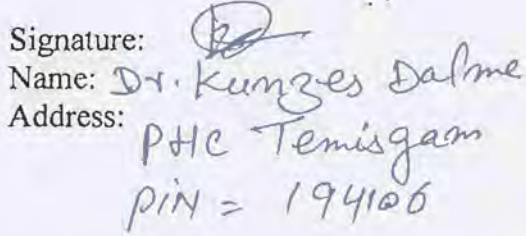 Signature:
Name: Dr. Kunzes Dalme
Address:
PHC Temisgam
PIN = 194106